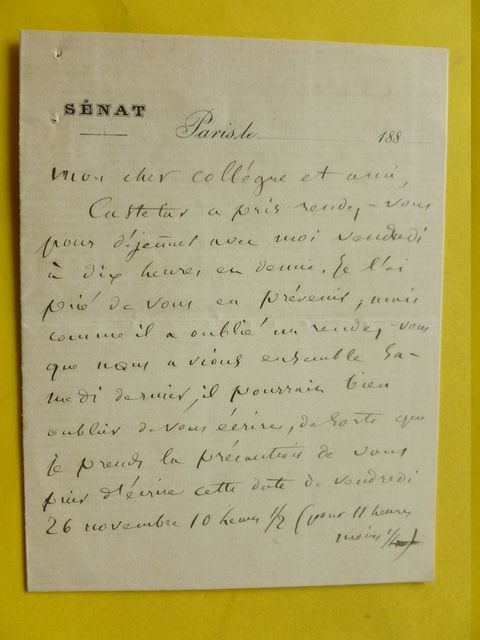 SÉNAT
Paris, le 188
Mon cher collégue et ami,
Castelar a pris rendez-vous
pour déjeuner avec moi vendredi
à dix heures en demie. Je l'ai
prié de vous en prévenir, mais
comme il a oublié un rendez-vous
que nous avions ensemble Sa-
medi dernier, il pourrait bien
oublier de vous écrire, de sorte que
je prends la précaution de vous
prier d'écrire cette date de vendredi
26 novembre 10 heures 1/2 (pour 11 heures
moins 1/4)